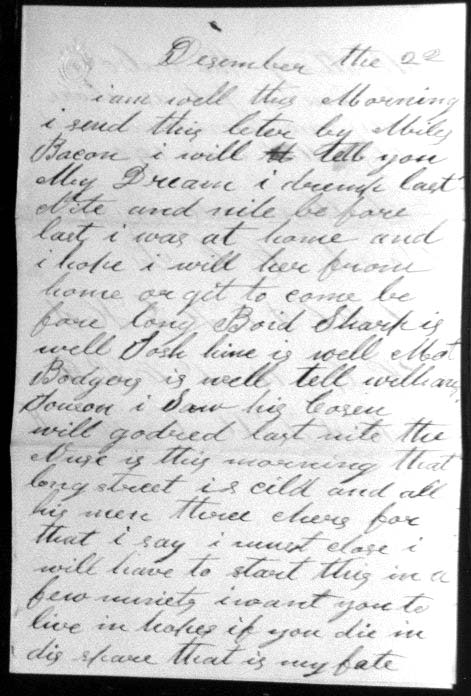 Desember the 22
i am well this Morning
i send this leter by Miles
Bacon i will tell you
My Dream i drump last
Nite and nite be fore
last i was at home and
i hope i will her from
home or git to come be
fore long Boid Sharp is
well Josh hine is well Mat
Bodgers is well tell william
Jonson i Saw his Cosen
will godred last nite the
Nuse is this morning that
longstreet is cild and all
his men three chers for
that i say i must close i
will have to start this in a
few muniets i want you to
live in hopes if you die in
dis spare that is my fate